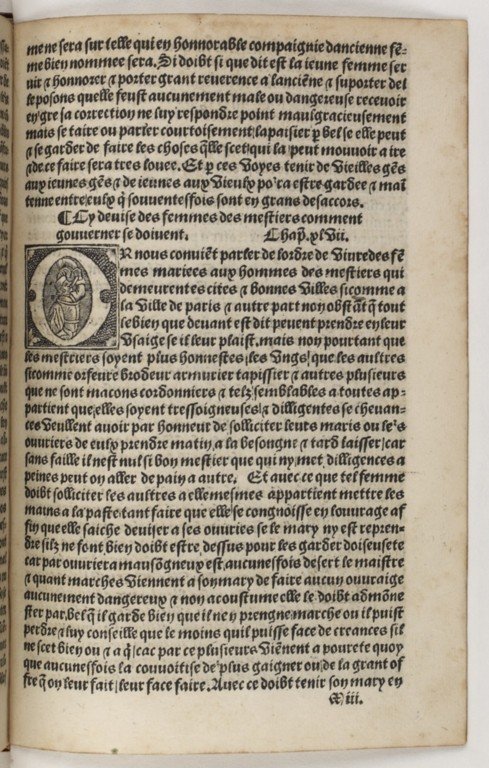 me ne sera sur telle qui en honnorable compaignie dancienne fē-
me bien nommee sera. Si doibt si que dit est la ieune femme ser
uir ⁊ honnorer ⁊ porter grant reuerence a lanciēne ⁊ suporter del
le posons quelle feust aucunement male ou dangereuse receuoir
en gre sa correction ne luy respondre point maulgracieusement
mais se taire ou parler courtoisement lapaisier p bel se elle peut
⁊ se garder de faire les choses q̄lle scet qui la peut mouuoir a ire
⁊ de ce faire sera tres louee. Et p ces voyes tenir de vieilles gēs
aux ieunes gēs ⁊ de ieunes aux vieulx po'ra estre gardee ⁊ mai
tenue entre eulx q̄ souuentesfois sont en grans desaccors.
¶ Cy deuise des femmes des mestiers comment
gouuerner se doiuent. Chap. xlvii.
OR nous conuiēt parler de lordre de viure des fē
mes mariees aux hommes des mestiers qui
demeurent es cites ⁊ bonnes villes si comme a
la ville de paris ⁊ autre part non obstāt q̄ tout
le bien que deuant est dit peuent prendre en leur
vsaige se il leur plaist. mais non pourtant que
les mestriers soyent plus honnestes les vngs que les aultres
si comme orfeure brodeur armurier tapissier ⁊ autres plusieurs
que ne sont macons cordonniers ⁊ telz semblables a toutes ap-
partient que elles soyent tressoigneuses ⁊ dilligentes se cheuan-
ces veullent auoir par honneur de solliciter leurs maris ou le's
ouuriers de eulx prendre matin a la besongne ⁊ tard laisser car
sans faille il nest nul si bon mestier que qui ny met dilligences a
peines peut on aller de pain a autre. Et auec ce que tel femme
doibt solliciter les aultres a elle mesmes appartient mettre les
mains a la paste tant faire que elle se congnoisse en louurage af
fin que elle saiche deuiser a ses ouuries se le mary ny est repren-
dre silz ne font bien doibt estre dessus pour les garder doiseusete
car par ouuriera mausōgneux est aucunesfois desert le maistre
⁊ quant marches viennent a son mary de faire aucun ouuraige
aucunement dangereux ⁊ non acoustume elle le doibt admōne
ster par bel q̄ il garde bien que il ne n prengne marche ou il puist
perdre ⁊ luy conseille que le moins quil puisse face de creances sil
ne scet bien ou ⁊ a q̄ cac par ce plusieurs viēnent a pourete quoy
que aucunesfois la couuoitise de plus gaigner ou de la grant of
fre q̄ on leur fait leur face faire. Auec ce doibt tenir son mary en
iii.